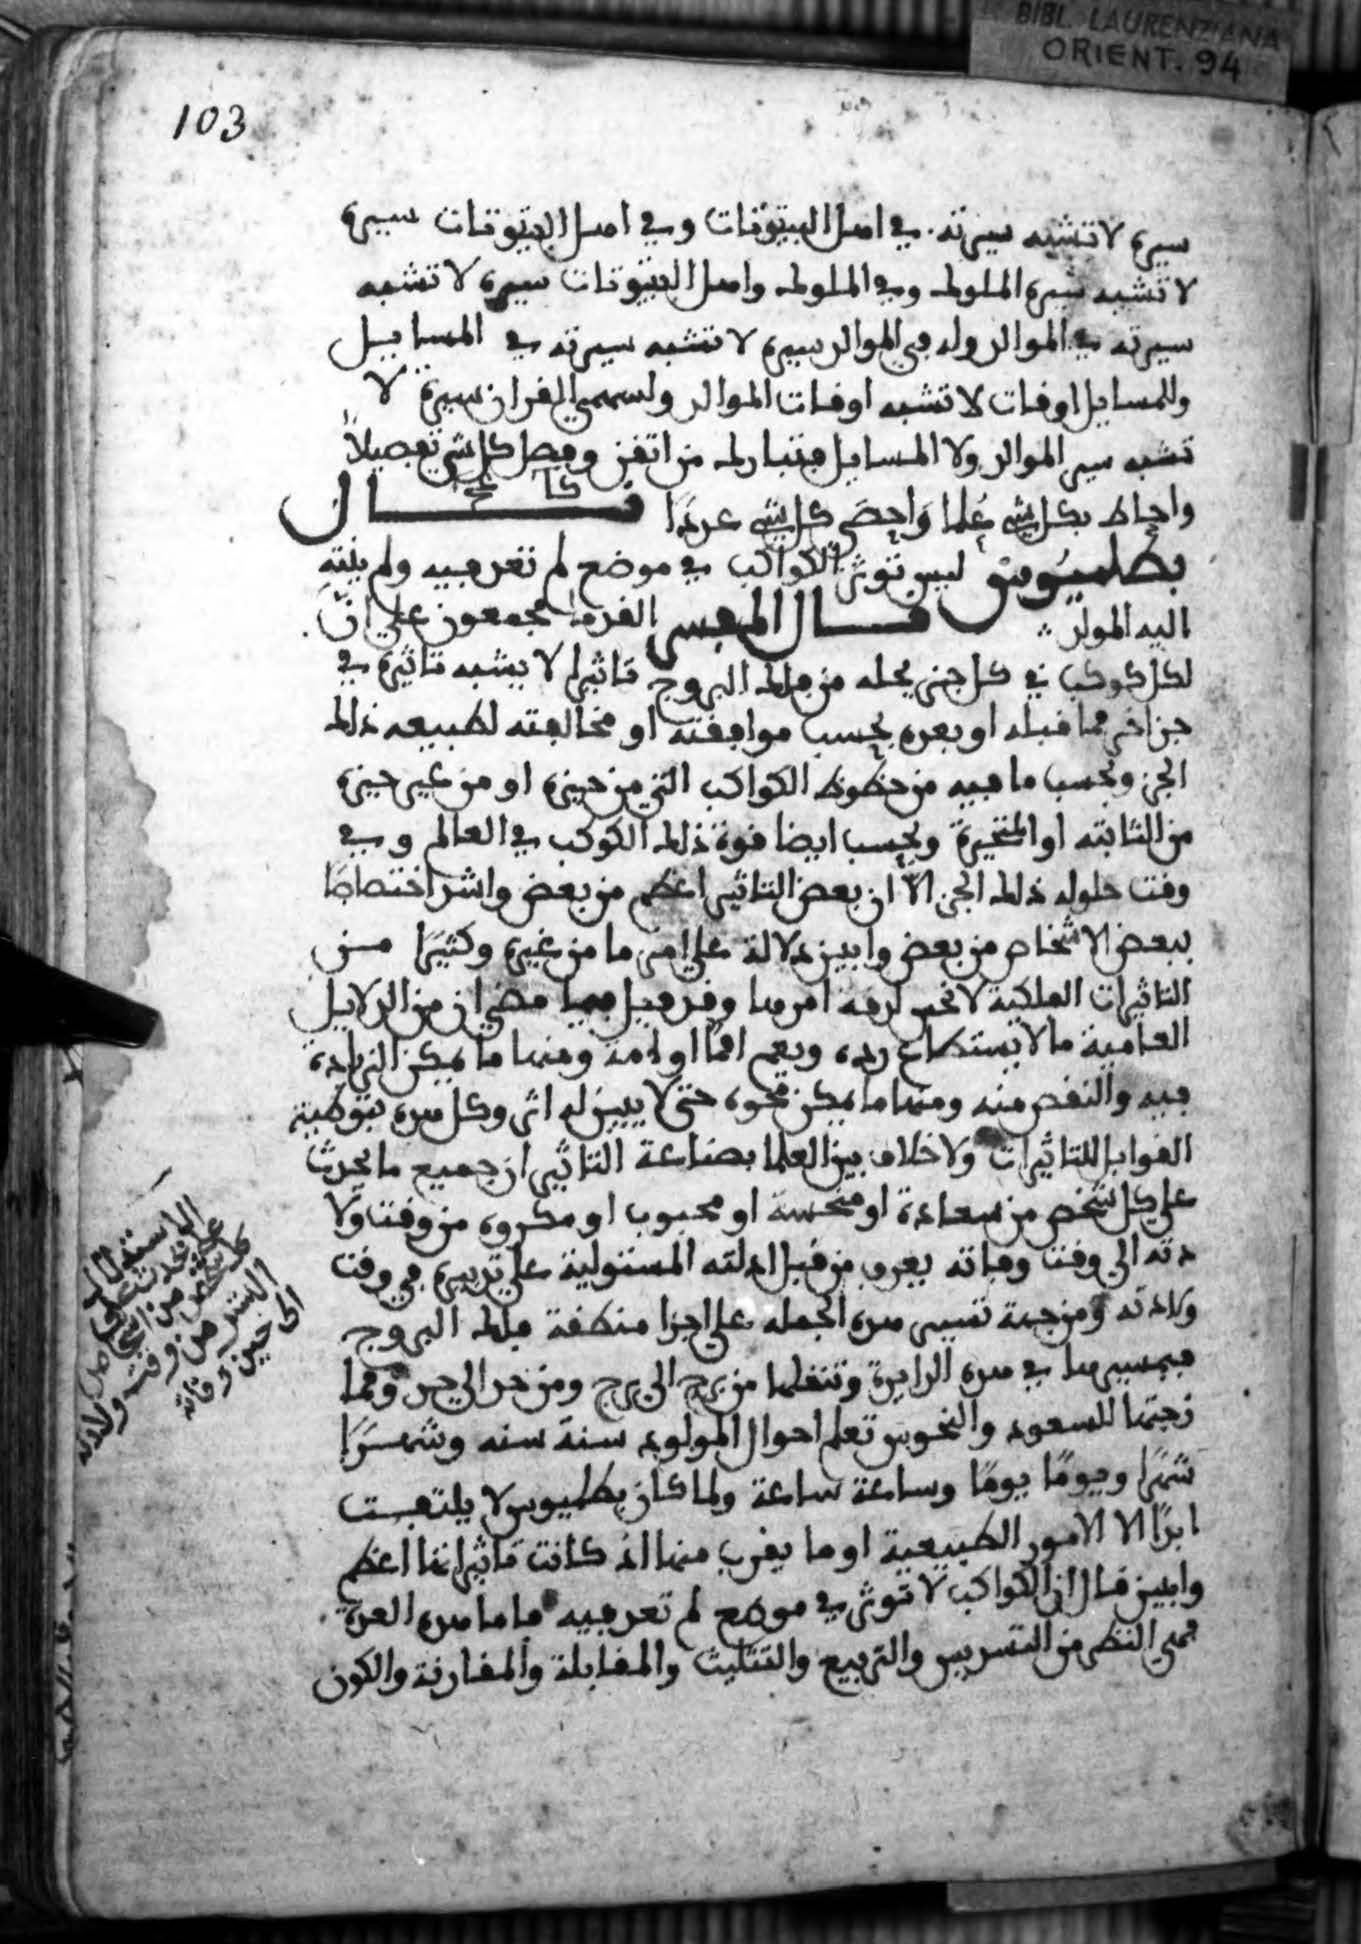 BIBL. LAURENZIANA
ORIENT. 94
103
سيرة لا تشبه سيرته في اهل البيوتات وفي اهل البيوتات سيرة
لا تشبه سيرة الملوك وفي الملوك واهل البيوتات سيرة لا تشبه
سيرته في الموالد وله في الموالد سيرة لا تشبه سيرته في المسايل
وللمسايل اوقات لا تشبه اوقات الموالد ولسهمي القران سيرة لا
تشبه سير الموالد ولا المسايل فتبارك من اتقن وفصل كل شي تفصيلاً
واحاط بكل شي عُلما وَاحصَى كل شي عددًا قـــال
بطلميوس ليس توثر الكواكب في موضع لم تعد فيه ولم ينته
اليه المولد قـــال المفسر القدما مجمعون على ان
لكل كوكب في كل جزء يحله من فلك البروج تاثيرا لا يشبه تاثيره في
جزء اخر مما قبله او بعده بحسب موافقته او مخالفته لطبيعه ذلك
الجز وبحسب ما فيه من حظوظ الكواكب التي من حيزه او من غير حيزه
من الثابته او المتحيرة وبحسب ايضا قوة ذلك الكوكب في العالم وفي
وقت حلوله ذلك الجز الا ان بعض التاثير اعظم من بعض واشد اختصاصًا
ببعض الاشخاص من بعض وابين دلالة على امر ما من غيره وكثيرًا مـن
التاثيرات الفلكية لا تحس لدقه امرها وقد قيل فيما مضى ان من الدلايل
العامية ما لا يستطاع رده ويعم امما او امة ومنها ما يمكن الزيادة
فيه والنقص منه ومنها ما يمكن محوه حتى لا يبين له اثر وكل هذه بتوطية
القوابل للتاثيرات ولا خلاف بين العلما بصناعة التاثير ان جميع ما يحدث
على كل شخص من سعادة او منحسة او محبوب او مكروه من وقت ولا
دته الى وقت وفاته يعرف من قبل ادلته المستولية على تدبيره في وقت
ولادته ومن جهة تقسيم هذه الجمله على اجزا منطقة فلك البروج
فبمسيرها في هذه الدايرة وتنقلها من برج الى برج ومن حد الى حد ومما
زجتها للسعود والنحوس تعلم احوال المولود سنة سنه وشهـرًا
شهرًا ويومًا يومًا وساعة ساعة ولما كان بطلميوس لا يلتفت
ابدًا الا الامور الطبيعية او ما يقرب منها اذ كانت تاثيراتها اعظم
وابين قال ان الكواكب لا توثر في موضع لم تعد فيه فاما هذه العدة
فهي النظر من التسديس والتربيع والتثليث والمقابلة والمقارنة والكون
على كل شخص من
من وقت ولادته
الى حين وفاته